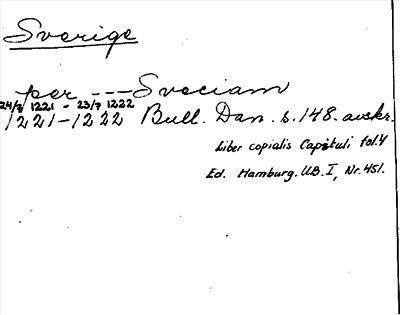 Sverige
per --- Sveciam
24/7 1221 - 23/7 1222
1221-1222 Bull. Dan. s. 148. avskr.
Liber copialis Capituli fol. 4
Ed. Hamburg. U.B. I, Nr. 451.